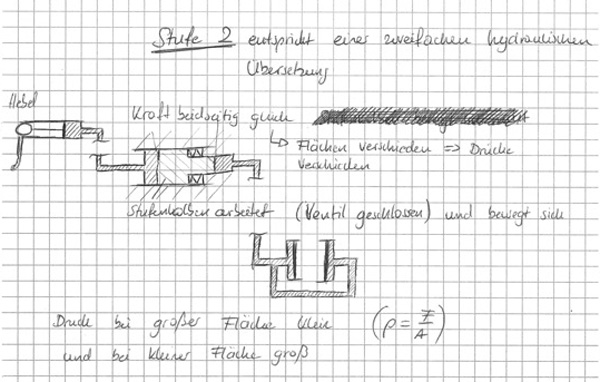 Stufe 2 entspricht einer zweifachen hydraulischen
Übersetzung
Hebel
Kraft beidseitig gleich
↳ Flächen verschieden => Drücke
verschieden
Stufenkolben arbeitet (Ventil geschlossen) und bewegt sich
Druck bei großer Fläche klein (p = F/A)
und bei kleiner Fläche groß